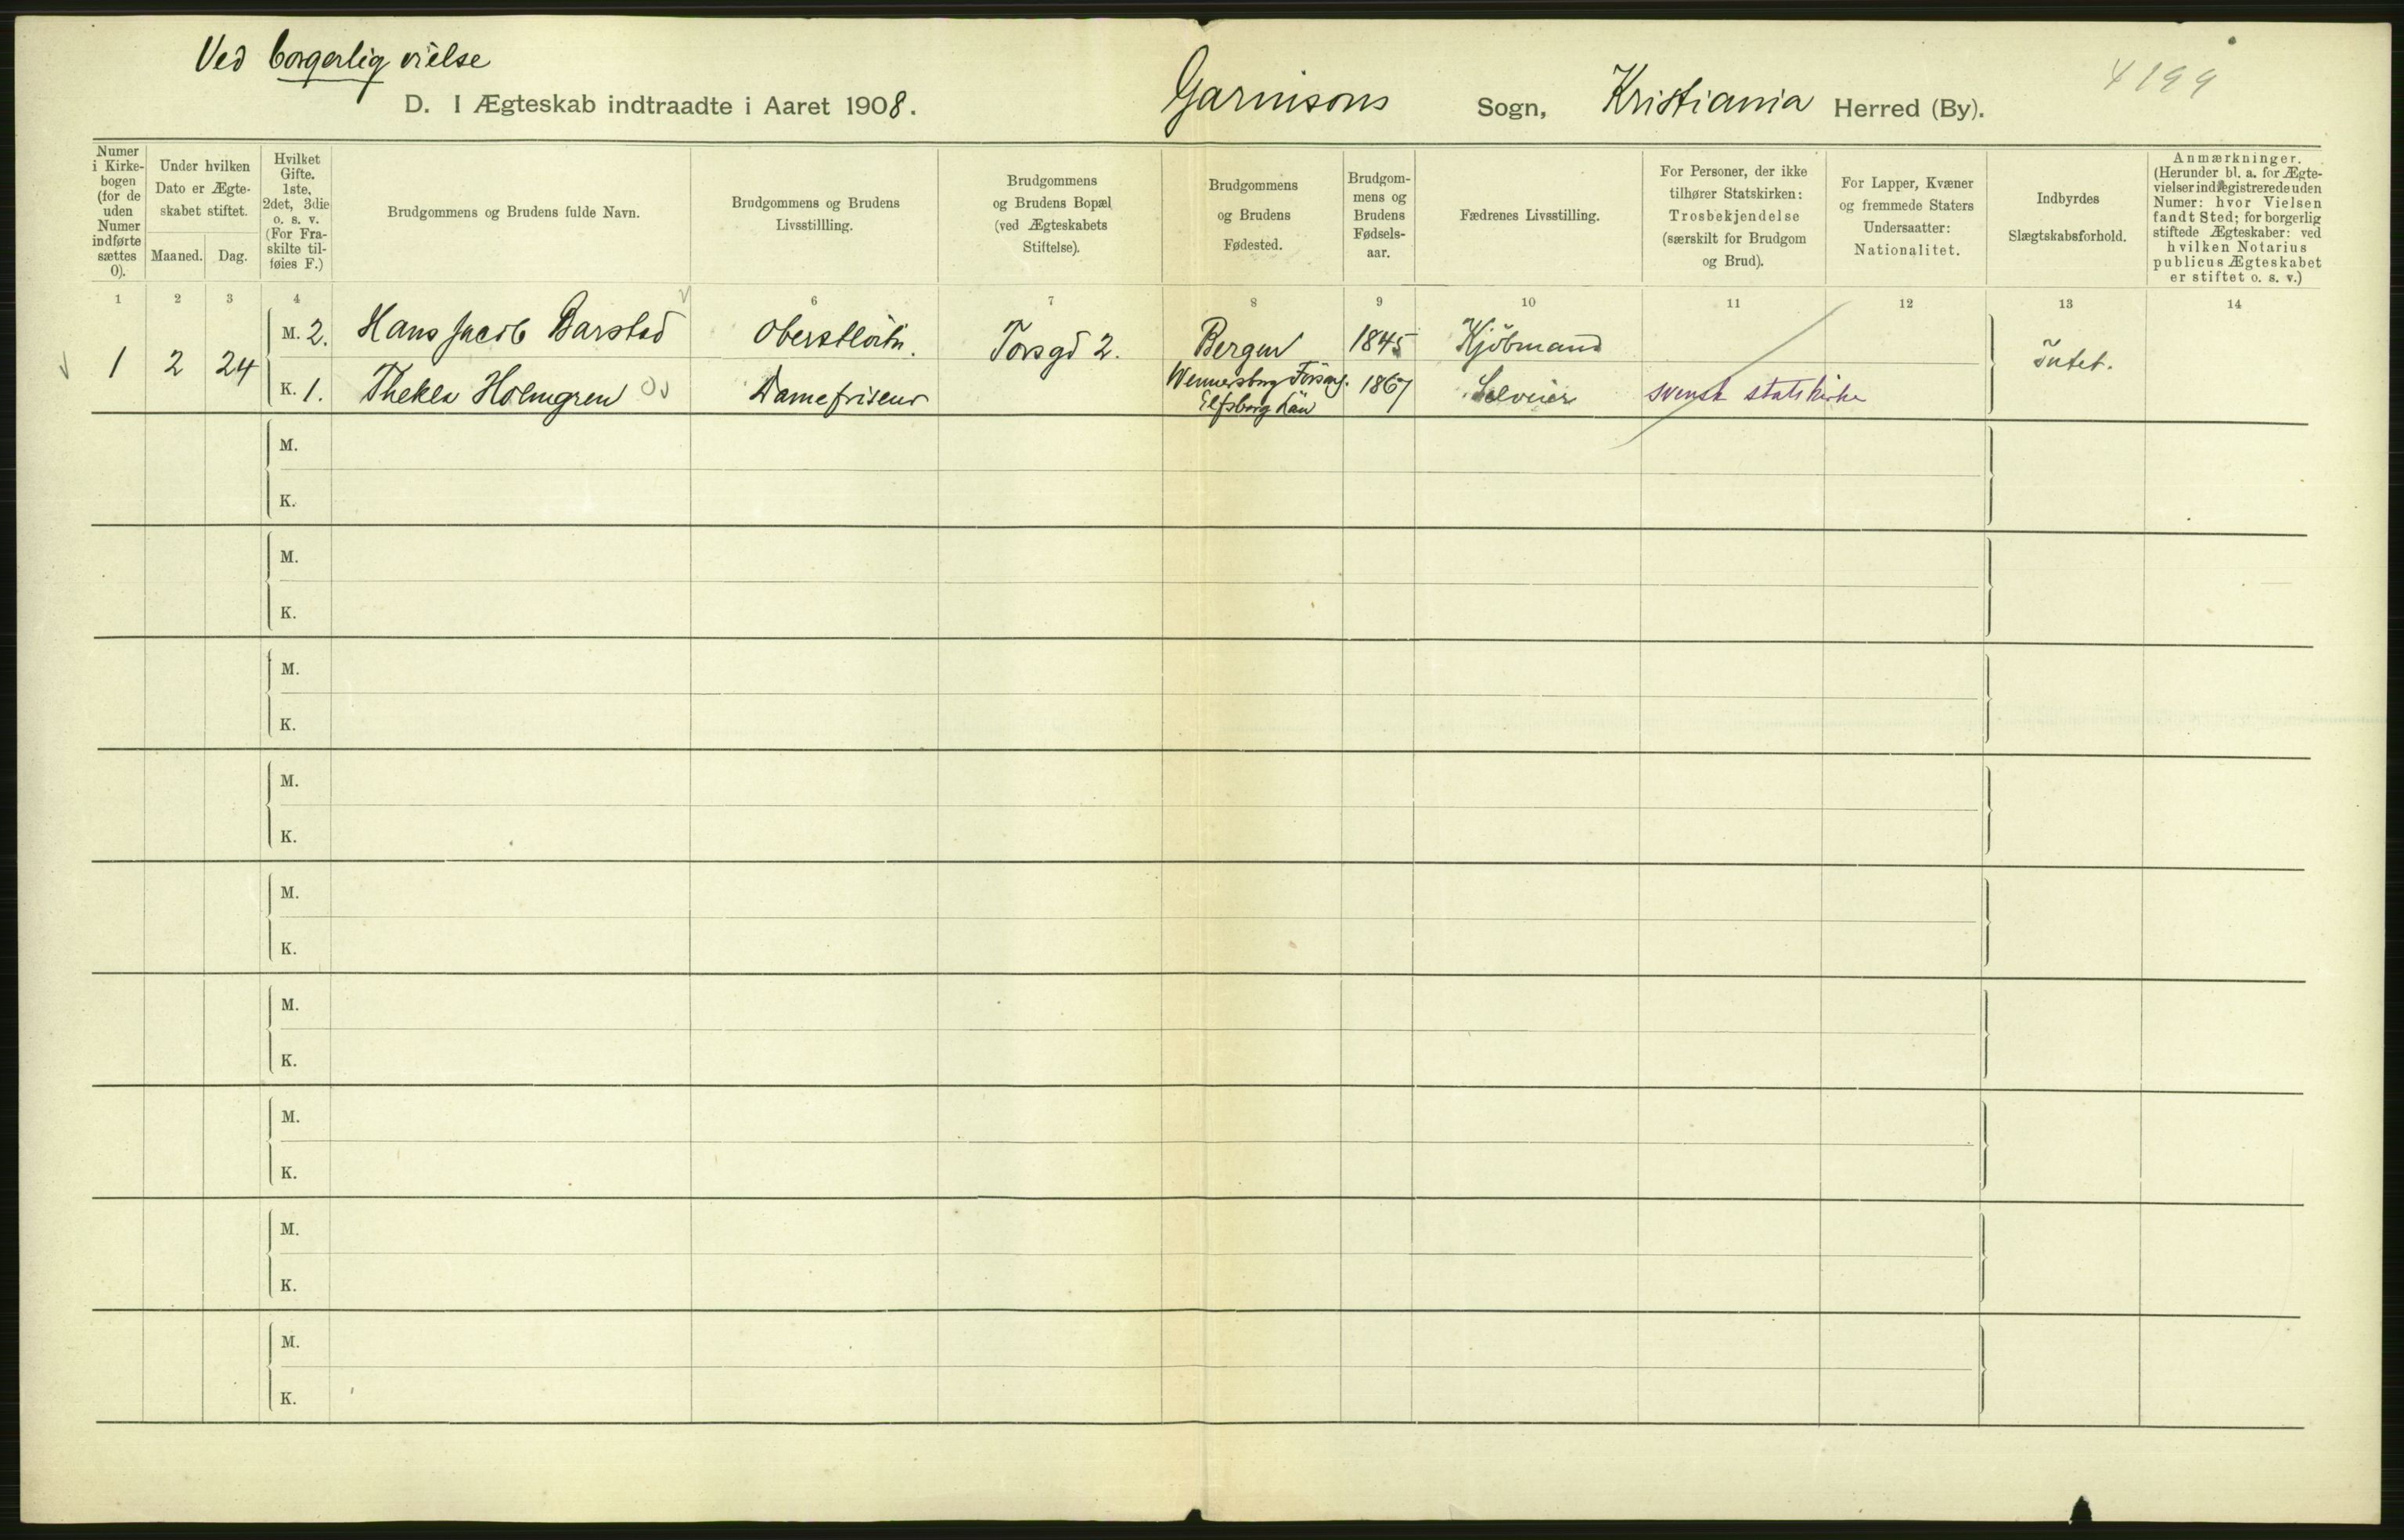 Ved borgerlig vielse
D. I Ægteskab indtraadte i Aaret 1908.
Garnisons Sogn, Kristiania Herred (By).
4199
Numer
i Kirke-
bogen
(for de
uden
Numer
indførte
sættes
0).
Under hvilken
Dato er Ægte-
skabet stiftet.
Maaned. Dag.
Hvilket
Gifte.
1ste,
2det, 3die
o. s. v.
(For Fra-
skilte til-
føies F.)
Brudgommens og Brudens fulde Navn.
Brudgommens og Brudens
Livsstillling.
Brudgommens
og Brudens Bopæl
(ved Ægteskabets
Stiftelse).
Brudgommens
og Brudens
Fødested.
Brudgom-
mens og
Brudens
Fødsels-
aar.
Fædrenes Livsstilling.
For Personer, der ikke
tilhører Statskirken:
Trosbekjendelse
(særskilt for Brudgom
og Brud).
For Lapper, Kvæner
og fremmede Staters
Undersaatter:
Nationalitet.
Indbyrdes
Slægtskabsforhold.
Anmærkninger.
(Herunder bl. a. for Ægte-
vielser indregistrerede uden
Numer: hvor Vielsen
fandt Sted; for borgerlig
stiftede Ægteskaber: ved
hvilken Notarius
publicus Ægteskabet
er stiftet o. s. v.)
1 2 3 4 6 7 8 9 10 11 12 13 14
M. 2. Hans Jacob Barstad Oberstløitn. Torsgd 2. Bergen 1845 Kjöbmand
1 2 24 Intet.
K. 1. Thekla Holmgren Damefriseur Wennersborg Församl. 1867 Selveier svensk statskirke
Elfsborg Län
M.
K.
M.
K.
M.
K.
M.
K.
M.
K.
M.
K.
M.
K.
M.
K.
M.
K.